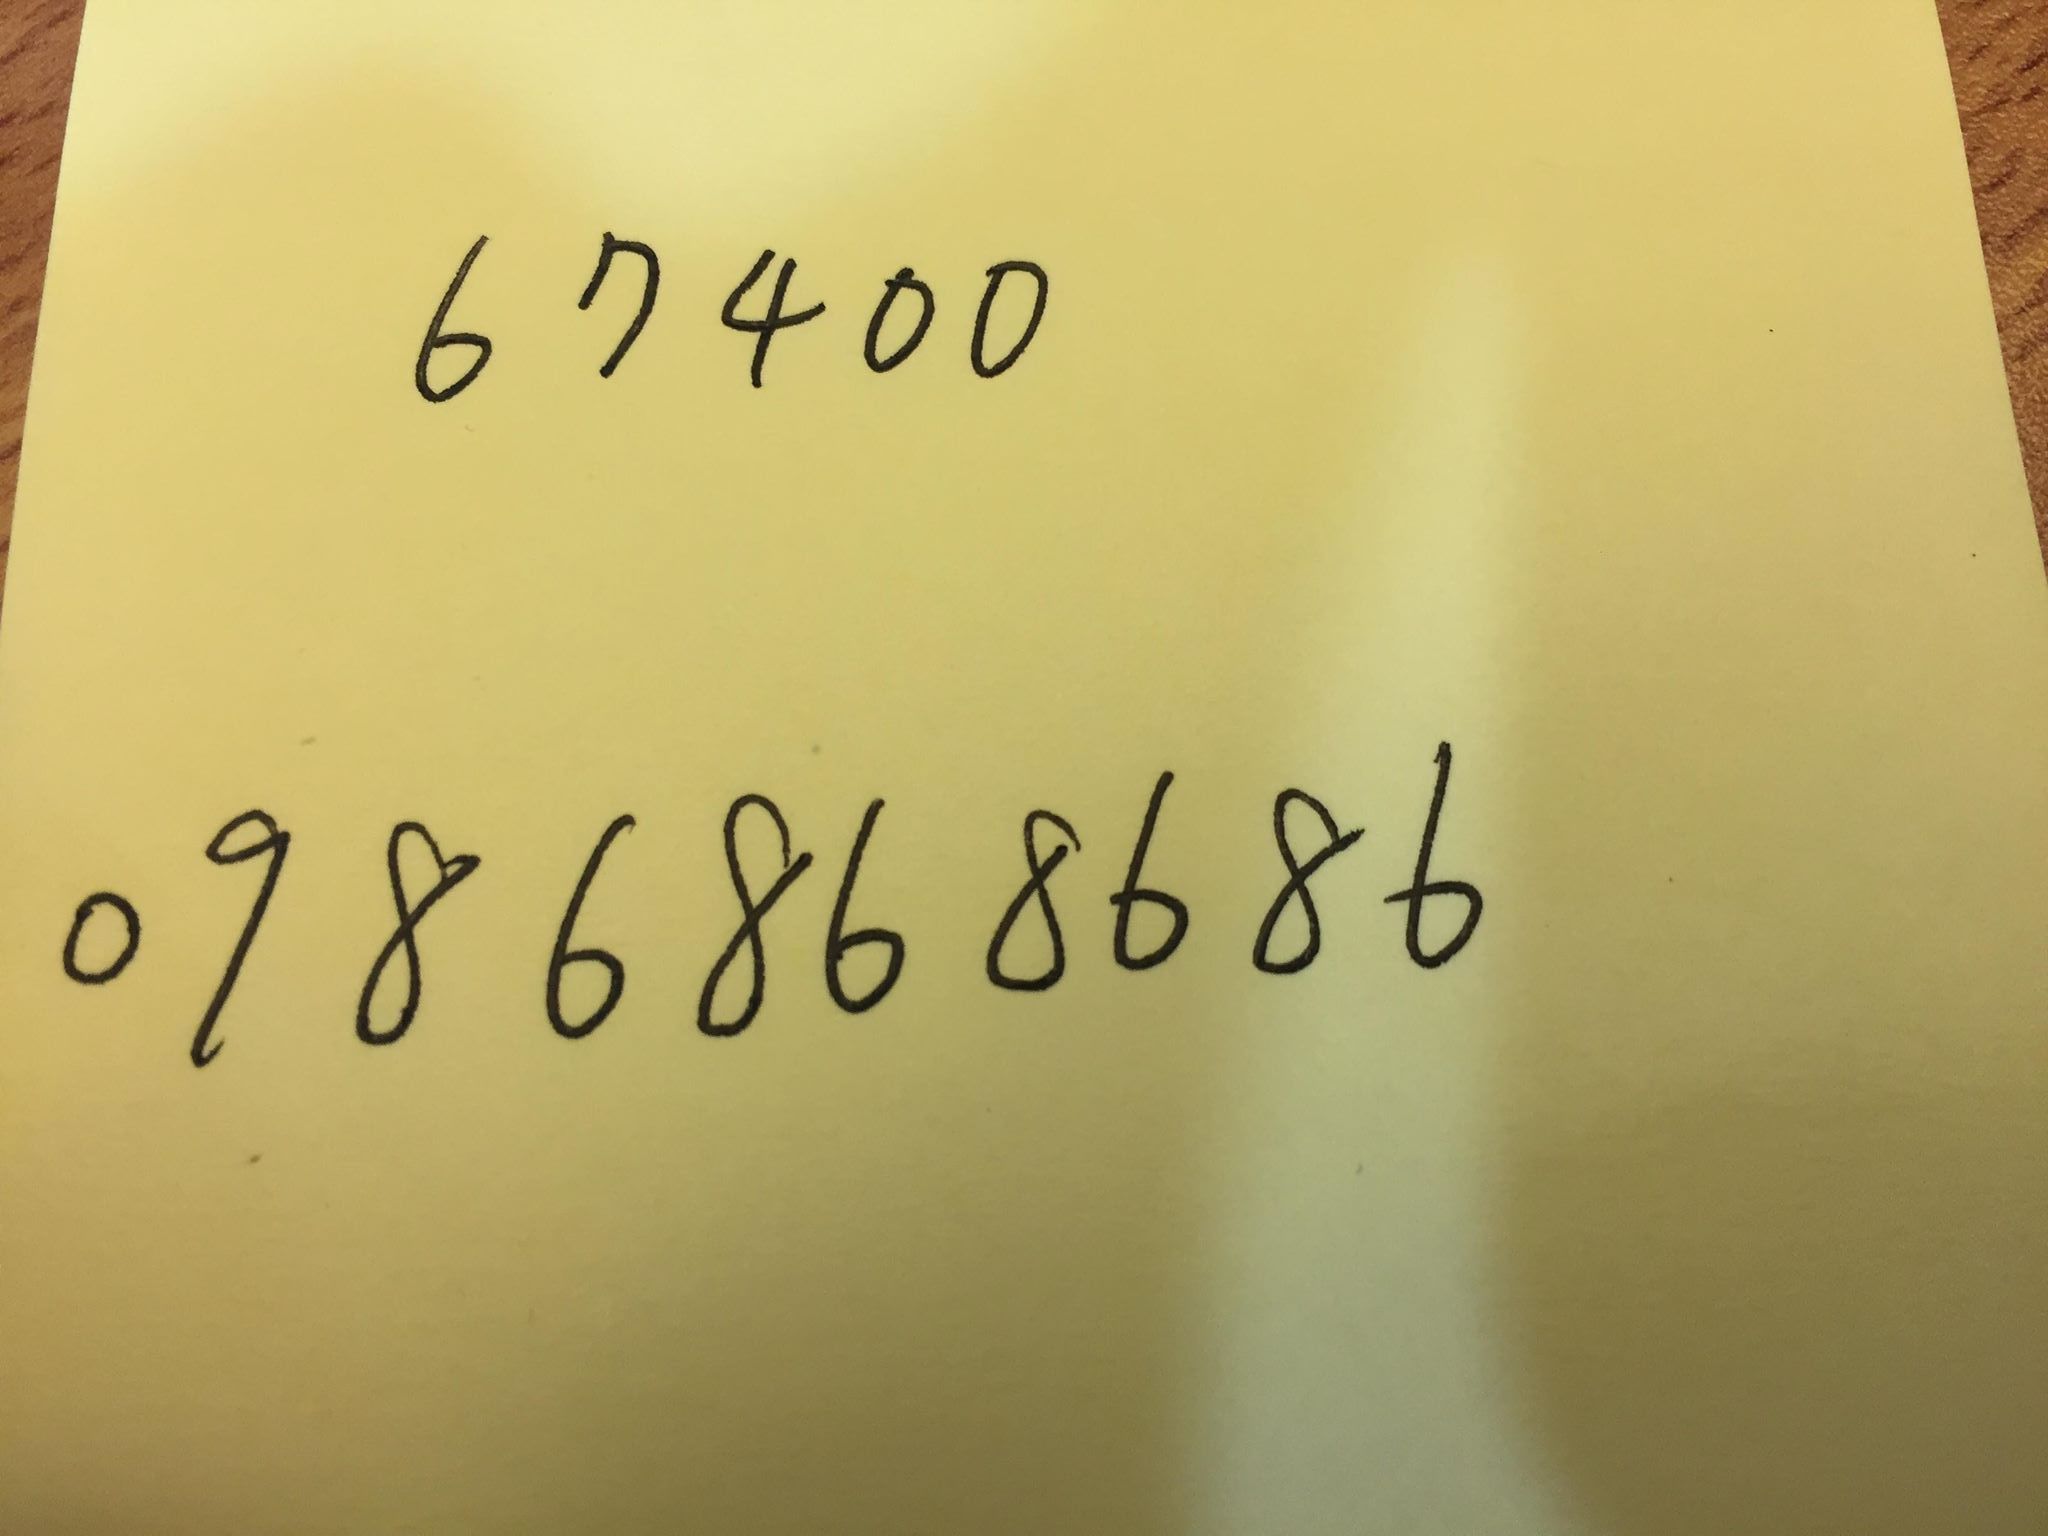 67400
0986868686